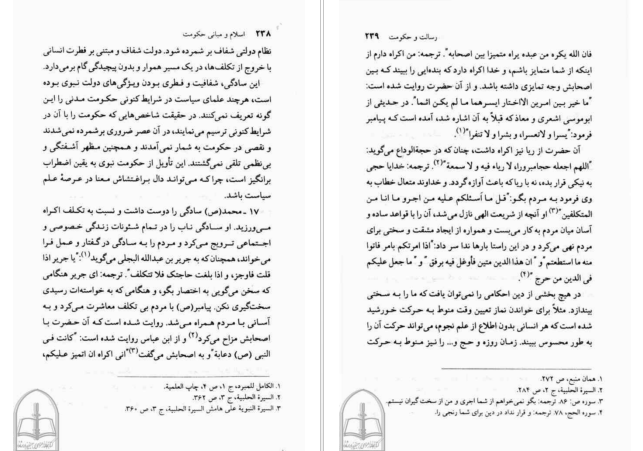 ۲۳۸ اسلام و مبانی حکومت
نظام دولتی شفاف بر شمرده شود. دولت شفاف و مبتنی بر فطرت انسانی
با خروج از تکلف‌ها، در یک مسیر هموار و بدون پیچیدگی گام برمی‌دارد.
این سادگی، شفافیت و فطری بودن ویژگی‌های دولت نبوی بوده
است، هرچند علمای سیاست در شرایط کنونی حکومت مدنی را این
گونه تعریف نمی‌کنند. در حقیقت شاخص‌هایی که حکومت را با آن در
شرایط کنونی ترسیم می‌نمایند، در آن عصر ضروری برشمرده نمی‌شدند
و نقصی در حکومت به شمار نمی‌آمدند و همچنین مظهر آشفتگی و
بی‌نظمی تلقی نمی‌گشتند. این تأویل از حکومت نبوی به یقین اضطراب
برانگیز است، چرا که می‌تواند دال براغتشاش معنا در عرصهٔ علم
سیاست باشد.
۱۷ ـ محمد(ص) سادگی را دوست داشت و نسبت به تکلف اکراه
می‌ورزید. او سادگی ناب را در تمام شئونات زندگی خصوصی و
اجتماعی ترویج می‌کرد و مردم را به سادگی در گفتار و عمل فرا
می‌خواند، همچنان که به جریر بن عبدالله البجلی می‌گوید(۱):"یا جریر اذا
قلت فاوجز، و اذا بلغت حاجتک فلا تتکلف". ترجمه: ای جریر هنگامی
که سخن می‌گویی به اختصار بگو، و هنگامی که به خواسته‌ات رسیدی
سخت‌گیری نکن. پیامبر(ص) با مردم بی تکلف معاشرت می‌کرد و به
آسانی با مردم همراه می‌شد. روایت شده است که آن حضرت با
اصحابش مزاح می‌کرد(۲) و از ابن عباس روایت شده است: "کانت فی
النبی (ص) دعابة" و به اصحابش می‌گفت(۳)"انی اکراه ان اتمیز علیکم،
۱. الکامل للمبرد، ج ۱، ص ۴، چاپ العلمیة.
۲. السیرة الحلبیة، ج ۳، ص ۳۶۲.
۳. السیرة النبویة علی هامش السیرة الحلبیة، ج ۳، ص ۳۶۰.
رسالت و حکومت ۲۳۹
فان الله یکره من عبده یراه متمیزا بین اصحابه". ترجمه: من اکراه دارم از
اینکه از شما متمایز باشم، و خدا اکراه دارد که بنده‌ایی را ببیند که بین
اصحابش وجه تمایزی داشته باشد. و از آن حضرت روایت شده است:
"ما خیر بین امرین الااختار ایسرهما ما لم یکن اثما". در حدیثی از
ابوموسی اشعری و معاذ که قبلاً به آن اشاره شد، آمده است که پیامبر
فرمود:"یسرا و لاتعسرا، و بشرا و لا تنفرا"(۱).
آن حضرت از ریا نیز اکراه داشت، چنان که در حجةالوداع می‌گوید:
"اللهم اجعله حجامبرورا، لا ریاء فیه و لا سمعة"(۲). ترجمه: خدایا حجی
به نیکی قرار بده، نه با ریا که باعث آوازه گردد. و خداوند متعال خطاب به
وی فرمود به مردم بگو:"قل ما أسئلکم علیه من اجرو ما انا من
المتکلفین"(۳) او آنچه از شریعت الهی نازل می‌شد، آن را با قواعد ساده و
آسان میان مردم به کار می‌بست و همواره از ایجاد مشقت و سختی برای
مردم نهی می‌کرد و در این راستا بارها ندا سر داد:"اذا امرتکم بامر فاتوا
منه ما استطعتم" و "ان هذا الدین متین فأوغل فیه برفق" و "ما جعل علیکم
فی الدین من حرج"(۴).
در هیچ بخشی از دین احکامی را نمی‌توان یافت که ما را به سختی
بیندازد. مثلاً برای خواندن نماز تعیین وقت منوط به حرکت خورشید
شده است که هر انسانی بدون اطلاع از علم نجوم، می‌تواند حرکت آن را
به طور محسوس ببیند. زمان روزه و حج و... را نیز منوط به حرکت
۱. همان منبع، ص ۴۷۲.
۲. السیرة الحلبیة، ج ۲، ص ۲۸۴.
۳. سوره ص: ۸۶. ترجمه: بگو نمی‌خواهم از شما اجری و من از سخت گیران نیستم.
۴. سوره الحج، ۷۸. ترجمه: و قرار نداد در دین برای شما رنجی را.